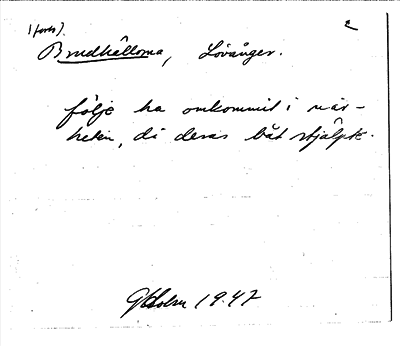 1 forts). 2
Brudhällorna, Lövånger.
följe ha omkommit i när-
heten, då deras båt stjälpte.
GHolm 1947